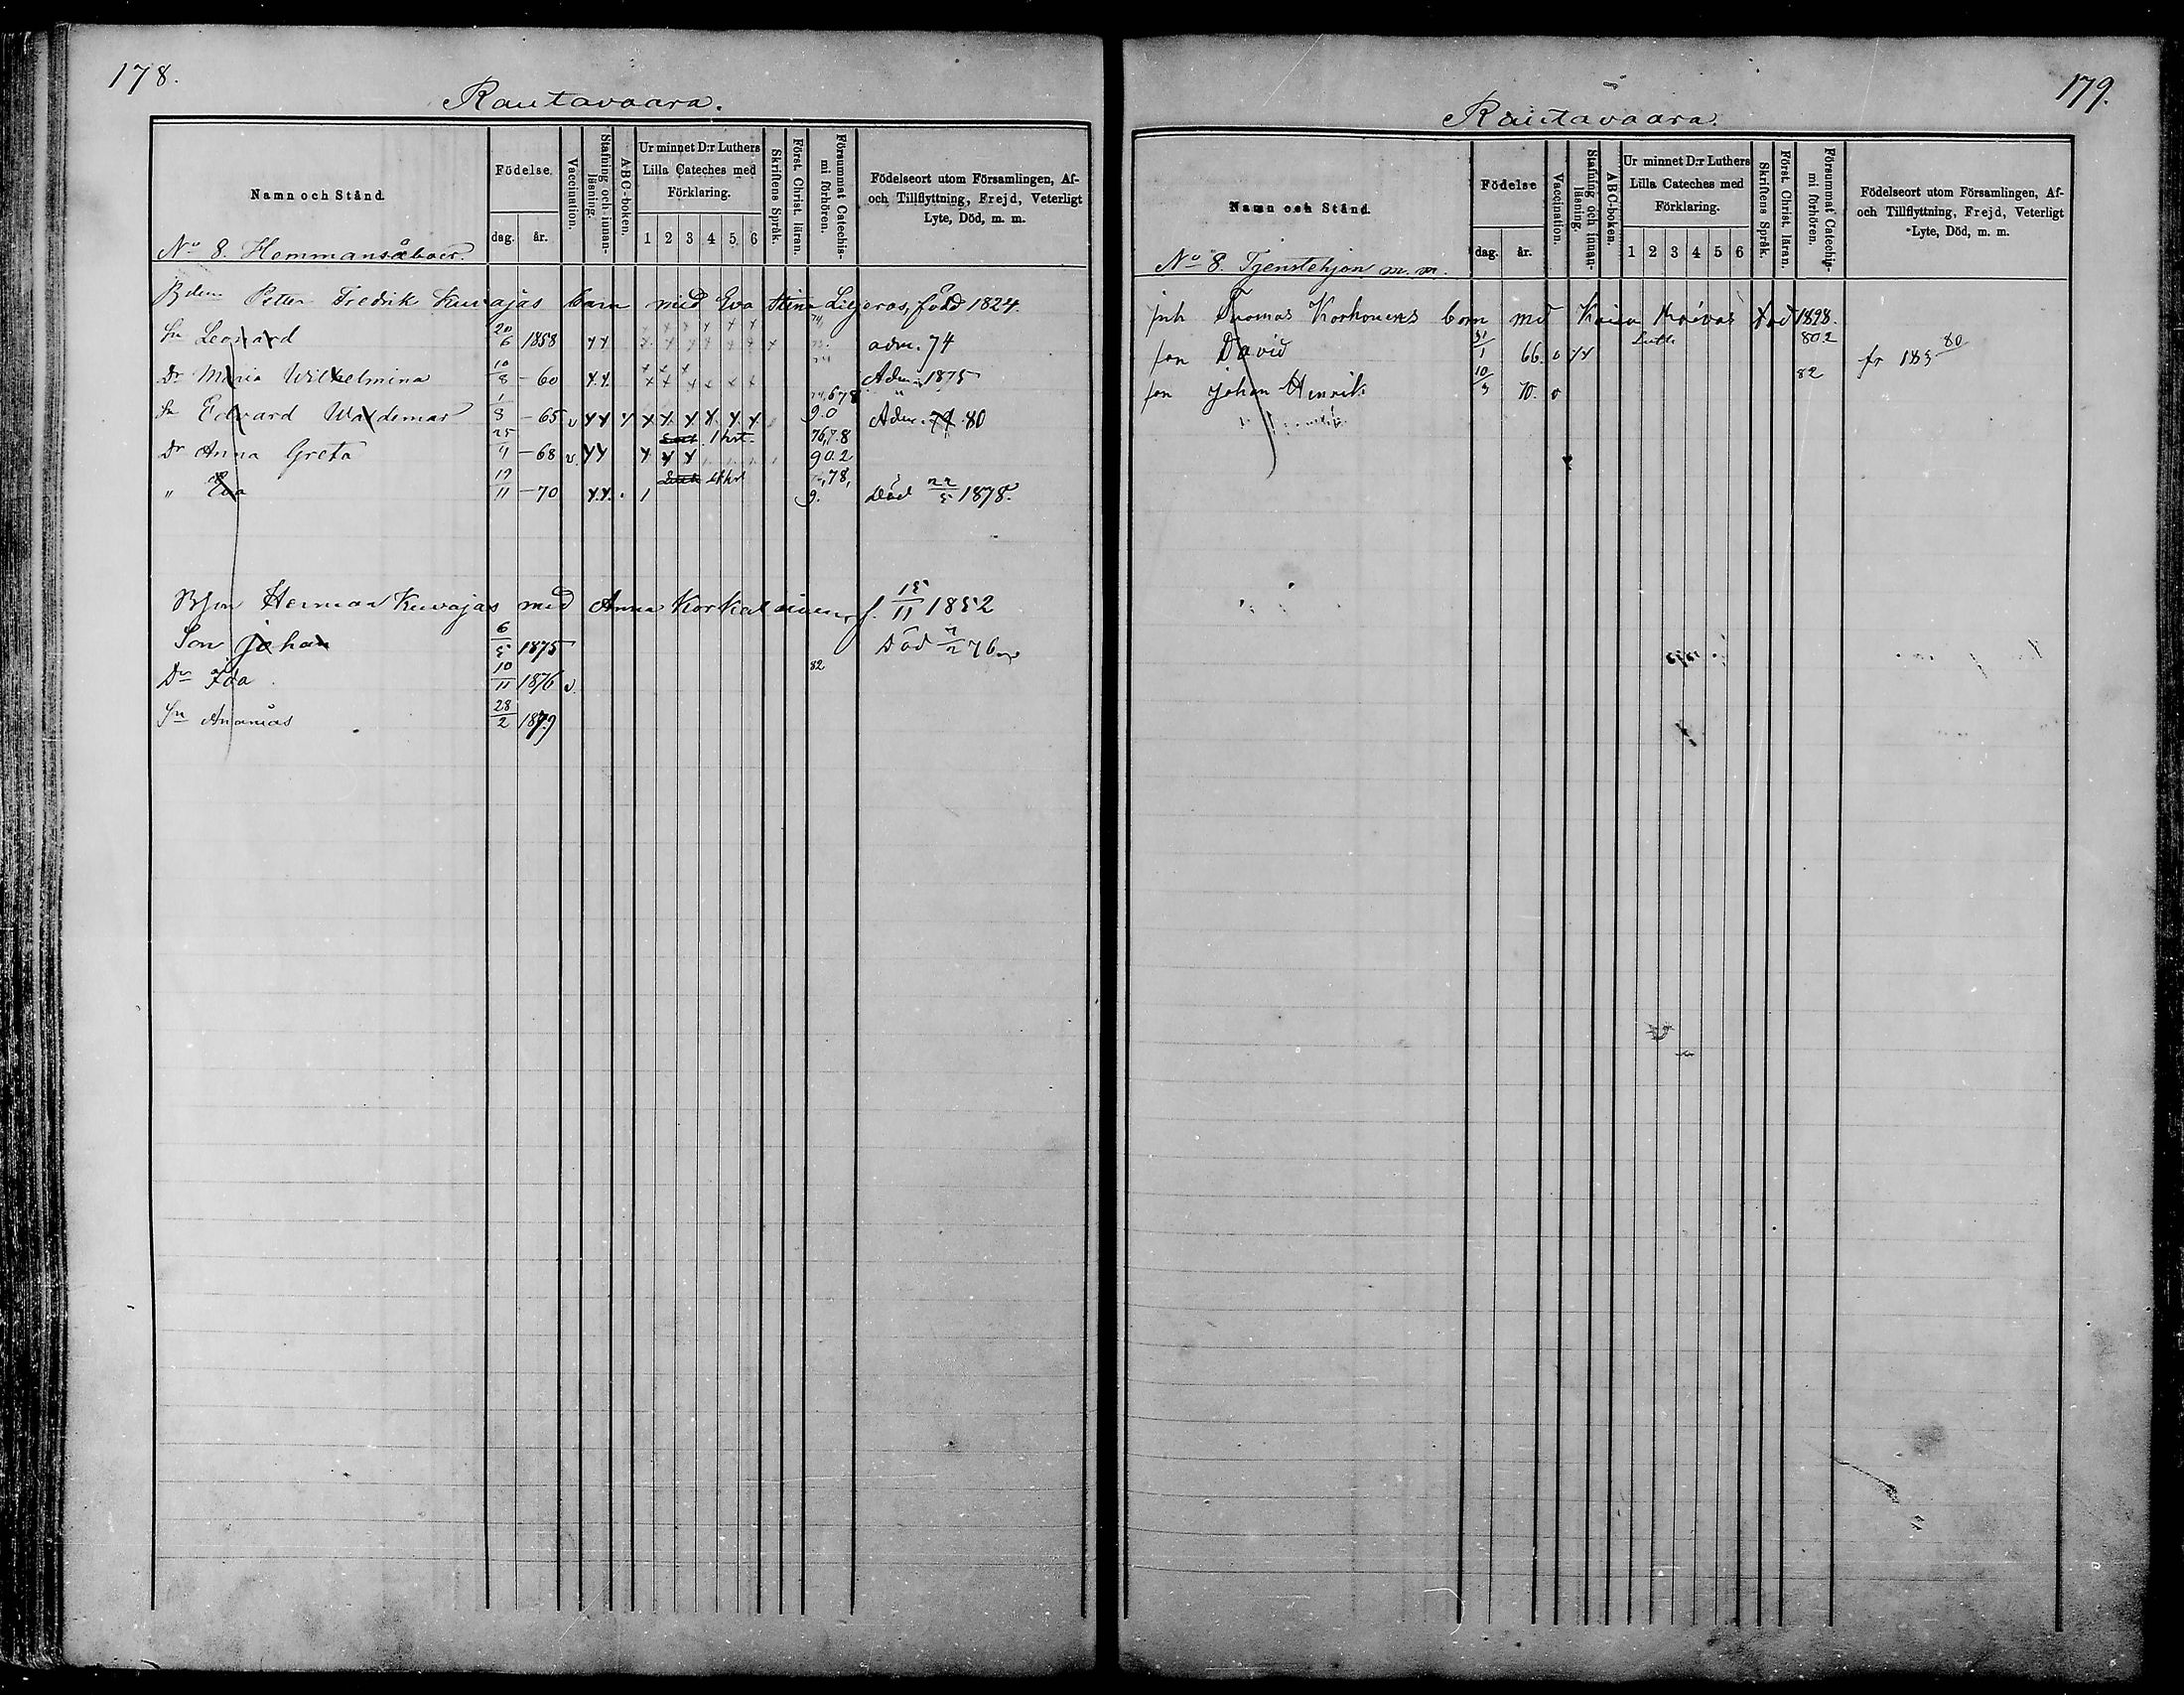 178.
Rautavaara.
Namn och Stånd.
Födelse.
dag. år.
Vaccination.
Stafning och innanläsning.
ABC-boken.
Ur minnet D:r Luthers Lilla Cateches med Förklaring.
1 2 3 4 5 6
Skriftens Språk.
Först. Christ. läran.
Försummat Catechismi förhören.
Födelseort utom Församlingen, Af- och Tillflyttning, Frejd, Veterligt Lyte, Död, m. m.
No 8. Hemmansåboer.
Petter Fredrik Kuvajas barn med Eva Stina Liljeros, född 1824.
Sn Leonard 20/6 1858 adm. 74
Dr Maria Wilhelmina 10/8 – 60 Adm. 1875
Sn Edvard Waldemar 1/8 – 65 v 9.0 Adm. 74 80
Dr Anna Greta 25/4 – 68 v. 76,7.8 90.2
" Eva 19/11 – 70 78, 9. död 22/5 1878.
Herman Kuvajas med Anna Korkalainen, f. 15/11 1852
Son Johan 6/5 1875 Död 76
Dr Ida 10/11 1876 v. 82
Sn Ananias 28/2 1879
179.
Rautavaara.
Namn och Stånd.
Födelse
dag. år.
Vaccination.
Stafning och innanläsning.
ABC-boken.
Ur minnet D:r Luthers Lilla Cateches med Förklaring.
1 2 3 4 5 6
Skriftens Språk.
Först. Christ. läran.
Försummat Catechismi förhören.
Födelseort utom Församlingen, Af- och Tillflyttning, Frejd, Veterligt Lyte, Död, m. m.
No 8. Tjenstehjon m. m.
inh Thomas Korhonens barn med Kaisa
son David 31/1 66. 802 fr 183 80
son Johan Henrik 10/3 70. 82